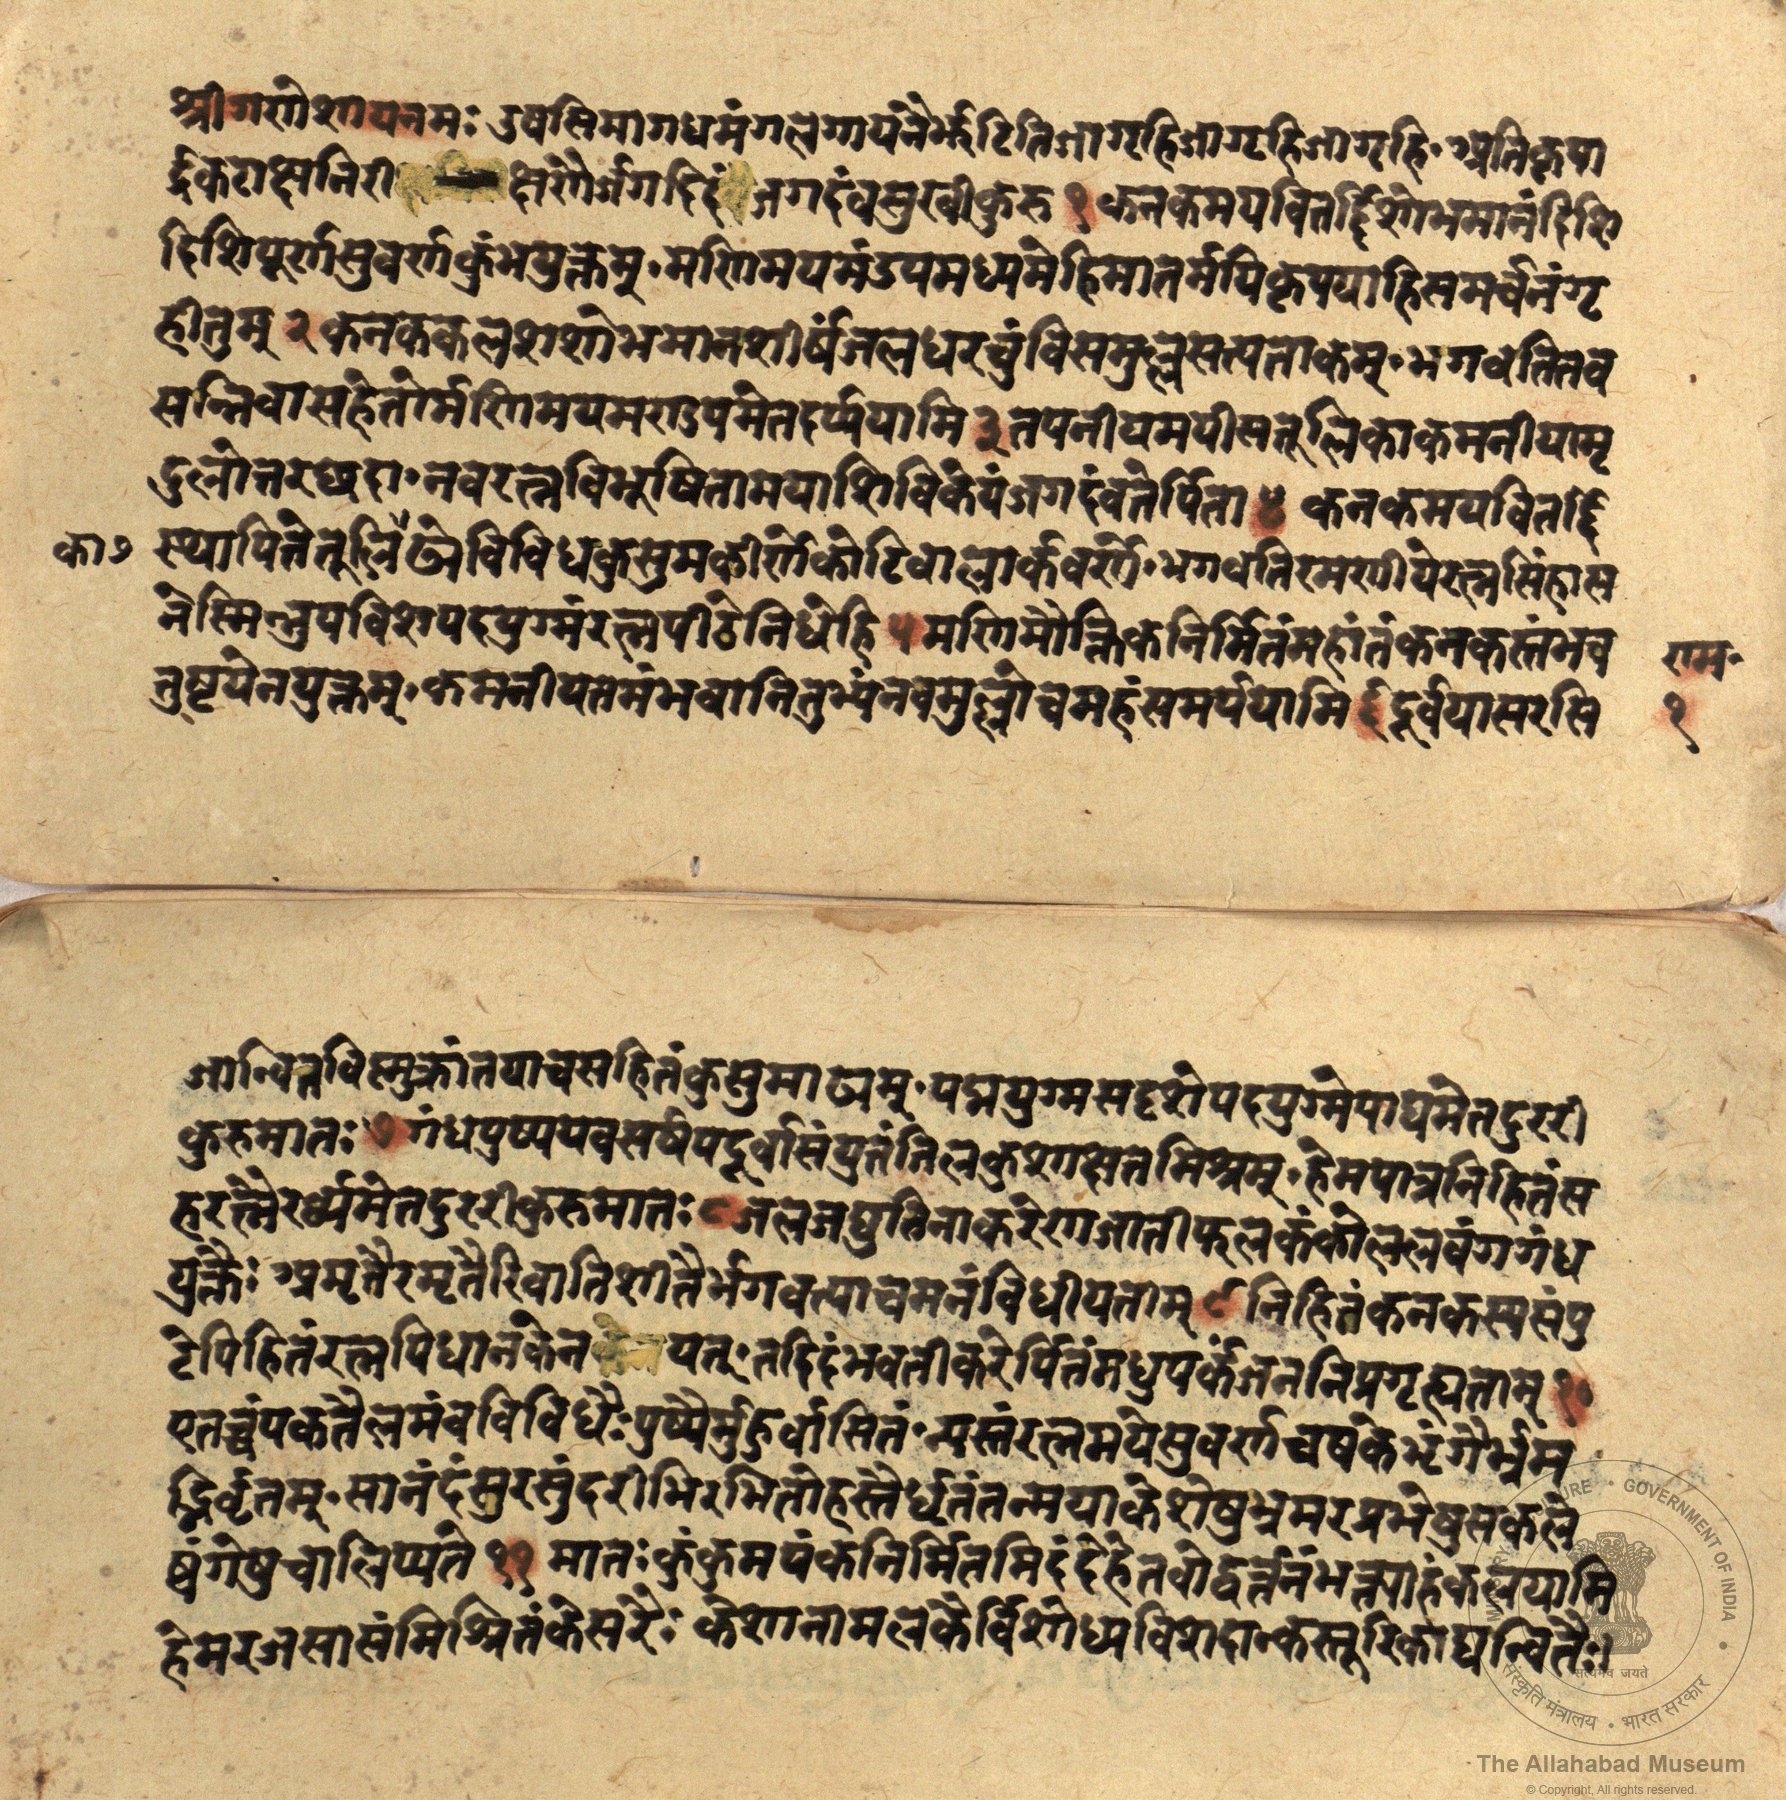 श्रीगणेशायनमः उषसिमागधमंगलगायनैर्झटितिजागृहिजागृहिजागृहि॰ अतिकृपा
र्द्रकटाक्षनिरी क्षणैर्जगदिदं जगदंवसुखीकुरु १ कनकमयवितर्द्दिशोभमानंदिशि
दिशिपूर्णसुवर्णकुंभयुक्तम्॰ मणिमयमंडपमध्यमेहिमातर्मयिकृपयाहिसमर्चनंगृ
हीतुम् २ कनककलशशोभमानशीर्षंजलधरचुंविसमुल्लसत्पताकम्॰ भगवतितव
सन्निवासहेतोर्मणिमयमण्डपमेतदर्प्पयामि ३ तपनीयमयीसतूलिकाकमनीयामृ
दुलोत्तरछदा॰ नवरत्नविभूषितामयाशिविकेयंजगदंवतेर्पिता ४ कनकमयवितर्द्दि
स्थापितेतूलिकाढ्येविविधकुसुमकीर्णेकोटिवालार्कवर्णे॰ भगवतिरमणीयेरत्नसिंहास
नेस्मिन्नुपविशपदयुग्मंरत्नपीठेनिधेहि ५ मणिमौक्तिकनिर्मितंमहांतंकनकस्तंभच
तुष्टयेनयुक्तम्॰ कमनीयतमंभवानितुभ्यंनवमुल्लोचमहंसमर्पयामि ६ दूर्वयासरसि
का७
राम॰
१
जान्वितविस्मुक्रांतयाचसहितंकुसुमाढ्यम्॰ पद्मयुग्मसदृशेपदयुग्मेपाद्यमेतदुररी
कुरुमातः ७ गंधपुष्पयवसर्षपदूर्वासंयुतंतिलकुशाक्षतमिश्रम्॰ हेमपात्रनिहितंस
हरत्नैरर्घ्यमेतदुररीकुरुमातः ८ जलजद्युतिनाकरेणजातीफलकंकोललवंगगंध
युक्तैः अमृतैरमृतैरिवातिशीतैर्भगवत्याचमनंविधीयताम् ९ निहितंकनकस्यसंपु
टेपिहितंरत्नपिधानकेन यत्॰ तदिदंभवतीकरेर्पितंमधुपर्कंजननिप्रगृह्यताम् १०
एतच्चंपकतैलमंवविविधैः पुष्पैर्मुहुर्वासितं॰ न्यस्तंरत्नमयेसुवर्णचषकेभृंगैर्भ्रम
द्भिर्वृतम्॰ सानंदंसुरसुंदरीभिरभितोहस्तैर्धृतंतन्मयाकेशेषुभ्रमरप्रभेषुसकले
ष्वंगेषुचालिप्यते ११ मातः कुंकुमपंकनिर्मितमिदंदेहेतवोद्वर्त्तनंभक्त्याहंकलयामि
हेमरजसासंमिश्रितंकेसरैः केशानामलकैर्विशोध्यविशदान्कस्तूरिकाद्यन्वितैः।
MINISTRY URE • GOVERNMENT OF INDIA •
सत्यमेव जयते
संस्कृति मंत्रालय • भारत सरकार
The Allahabad Museum
© Copyright, All rights reserved.